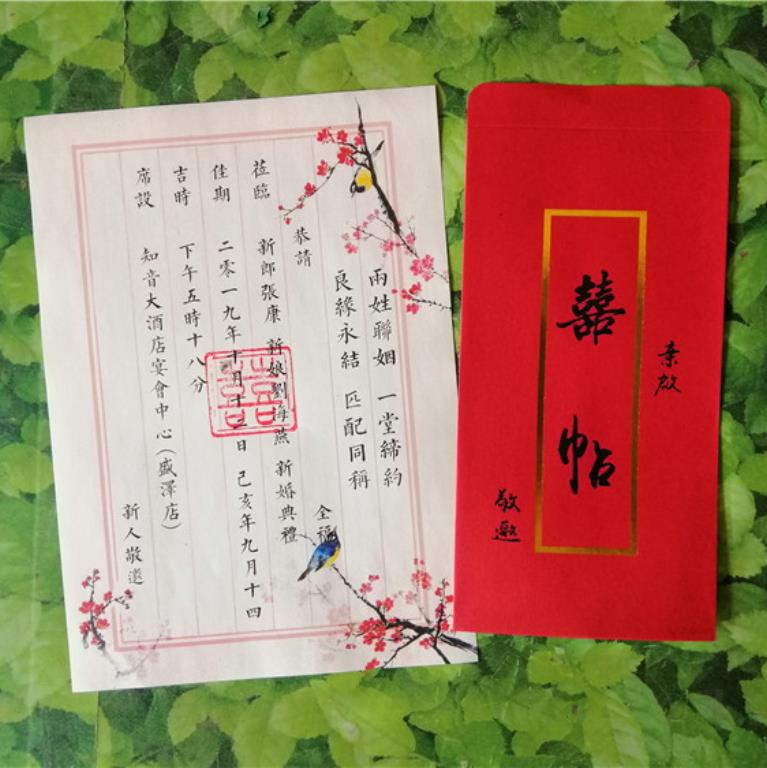 兩姓聯姻 一堂締約
良緣永結 匹配同稱
恭請 全福
莅臨 新郎張康 新娘劉海燕 新婚典禮
佳期 二零一九年十月十二日 己亥年九月十四
吉時 下午五時十八分
席設 知音大酒店宴會中心（盛澤店）
新人敬邀
囍
亲啟
囍帖
敬邀